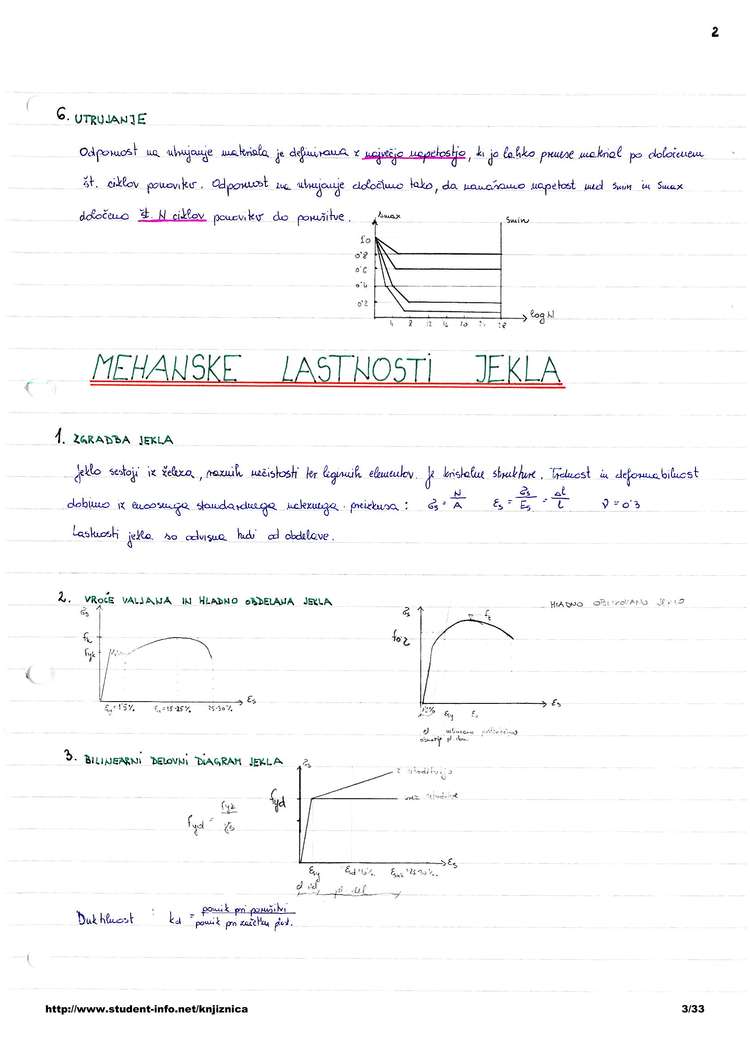 2
6. UTRUJANJE
Odpornost na utrujanje materiala je definirana z največjo napetostjo, ki jo lahko prenese material po določenem
št. ciklov ponovitev. Odpornost na utrujanje določimo tako, da nanašamo napetost med Smin in Smax
določeno št. N ciklov ponovitev do porušitve.
Smax
Smin
1.0
0.8
0.2
4 8 12
log N
MEHANSKE LASTNOSTI JEKLA
1. ZGRADBA JEKLA
Jeklo sestoji iz železa, raznih nečistosti ter legirnih elementov. Je kristalne strukture. Trdnost in deformabilnost
dobimo iz enoosnega standardnega nateznega preizkusa: σs = N/A εs = σs/Es = Δl/l ν = 0.3
Lastnosti jekla so odvisne tudi od obdelave.
2. VROČE VALJANA IN HLADNO OBDELANA JEKLA
HLADNO OBLIKOVANO JEKLO
σs
fyk
εs
σs
f0.2
εs
3. BILINEARNI DELOVNI DIAGRAM JEKLA
σs
fyd
brez utrditve
fyd =
εsy
εs
Duktilnost : kd = pomik pri porušitvi / pomik pri začetku plast.
http://www.student-info.net/knjiznica
3/33